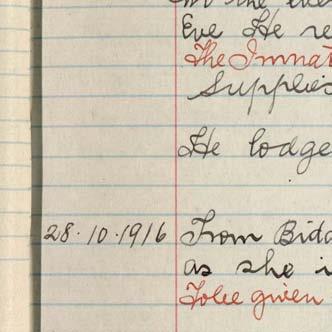 Eve He re
The Inmat
Supplies
He lodge
28.10.1916 From Bidd
as she i
To be given